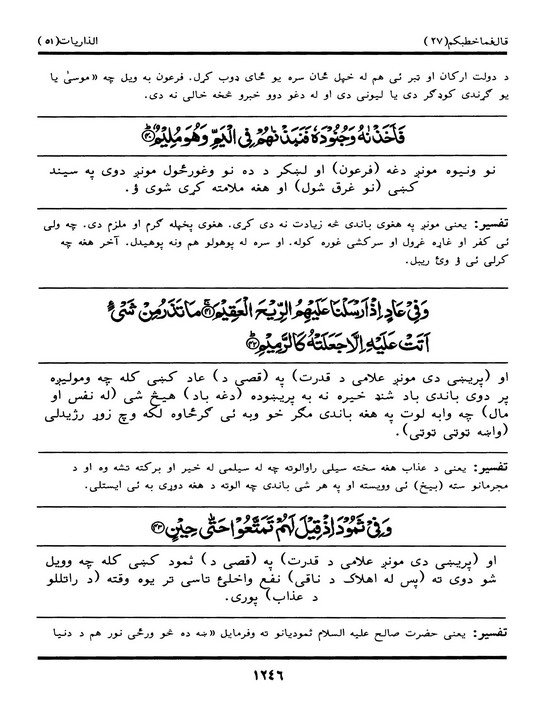 قال فما خطبکم(٢٧)
الذاریات(٥١)
د دولت ارکان او تبر ئی هم له خپل ځان سره یو ځای ډوب کړل. فرعون به ویل چه «موسیٰ یا
یو ګړندی کوډګر دی یا لیونی دی او له دغو دوو خبرو څخه خالی نه دی.
فَاَخَذۡنٰهُ وَجُنُوۡدَهٗ فَنَبَذۡنٰهُمۡ فِی الۡیَمِّ وَهُوَ مُلِیۡمٌ ﴿٤٠﴾
نو ونیوه مونږ دغه (فرعون) او لښکر د ده نو وغورځول مونږ دوی په سیند
کښی (نو غرق شول) او هغه ملامته کړی شوی ؤ.
تفسیر: یعنی مونږ په هغوی باندی څه زیادت نه دی کړی. هغوی پخپله ګرم او ملزم دی. چه ولی
ئی کفر او غاړه غړول او سرکشی غوره کوله. او سره له پوهولو هم ونه پوهیدل. آخر هغه چه
کرلی ئی ؤ وئ ریبل.
وَفِیۡ عَادٍ اِذۡ اَرۡسَلۡنَا عَلَیۡهِمُ الرِّیۡحَ الۡعَقِیۡمَ ﴿٤١﴾ مَا تَذَرُ مِنۡ شَیۡءٍ
اَتَتۡ عَلَیۡهِ اِلَّا جَعَلَتۡهُ کَالرَّمِیۡمِ ﴿٤٢﴾
او (پریښی دی مونږ علامی د قدرت) په (قصی د) عاد کښی کله چه ومولیږه
پر دوی باندی باد شنډ خیره نه به پریښوده (دغه باد) هیڅ شی (له نفس او
مال) چه وابه لوت په هغه باندی مګر خو وبه ئی ګرځاوه لکه وچ زوړ رژیدلی
(واښه ټوټی ټوټی).
تفسیر: یعنی د عذاب هغه سخته سیلی راوالوته چه له سیلمی له خیر او برکته تشه وه او د
مجرمانو سته (بیخ) ئی وویسته او په هر شی باندی چه الوته د هغه دوړی به ئی ایستلی.
وَفِیۡ ثَمُوۡدَ اِذۡ قِیۡلَ لَهُمۡ تَمَتَّعُوۡا حَتّٰی حِیۡنٍ ﴿٤٣﴾
او (پریښی دی مونږ علامی د قدرت) په (قصی د) ثمود کښی کله چه وویل
شو دوی ته (پس له اهلاک د ناقی) نفع واخلئ تاسی تر یوه وقته (د راتللو
د عذاب) پوری.
تفسیر: یعنی حضرت صالح علیه السلام ثمودیانو ته وفرمایل «ښه ده څو ورځی نور هم د دنیا
١٢٤٦